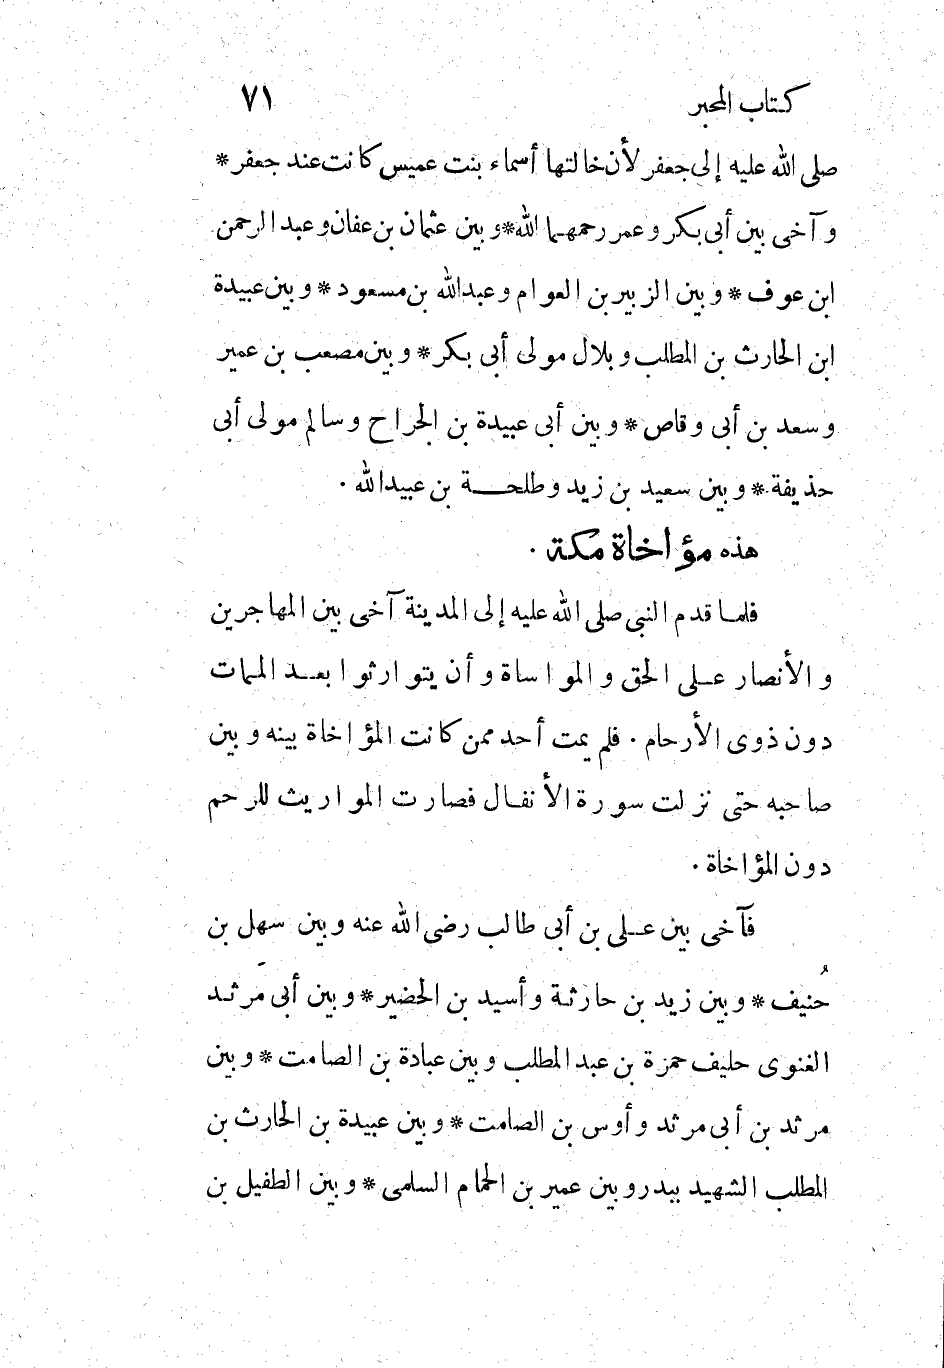 كتاب المحبر ٧١
صلى الله عليه إلى جعفر لأن خالتها أسماء بنت عميس كانت عند جعفر *
وآخى بين أبى بكر وعمر رحمهما الله * وبين عثمان بن عفان وعبد الرحمن
ابن عوف * وبين الزبير بن العوام وعبدالله بن مسعود * وبين عبيدة
ابن الحارث بن المطلب وبلال مولى أبى بكر * وبين مصعب بن عمير
وسعد بن أبى وقاص * وبين أبى عبيدة بن الجراح وسالم مولى أبى
حذيفة * وبين سعيد بن زيد وطلحة بن عبيدالله .
هذه مؤاخاة مكة .
فلما قدم النبى صلى الله عليه إلى المدينة آخى بين المهاجرين
والأنصار على الحق والمواساة وأن يتوارثوا بعد الممات
دون ذوى الأرحام . فلم يمت أحد ممن كانت المؤاخاة بينه وبين
صاحبه حتى نزلت سورة الأنفال فصارت المواريث للرحم
دون المؤاخاة .
فآخى بين على بن أبى طالب رضى الله عنه وبين سهل بن
حُنيف * وبين زيد بن حارثة وأسيد بن الحضير * وبين أبى مَرثد
الغنوى حليف حمزة بن عبد المطلب وبين عبادة بن الصامت * وبين
مرثد بن أبى مرثد وأوس بن الصامت * وبين عبيدة بن الحارث بن
المطلب الشهيد ببدر وبين عمير بن الحمام السلمى * وبين الطفيل بن